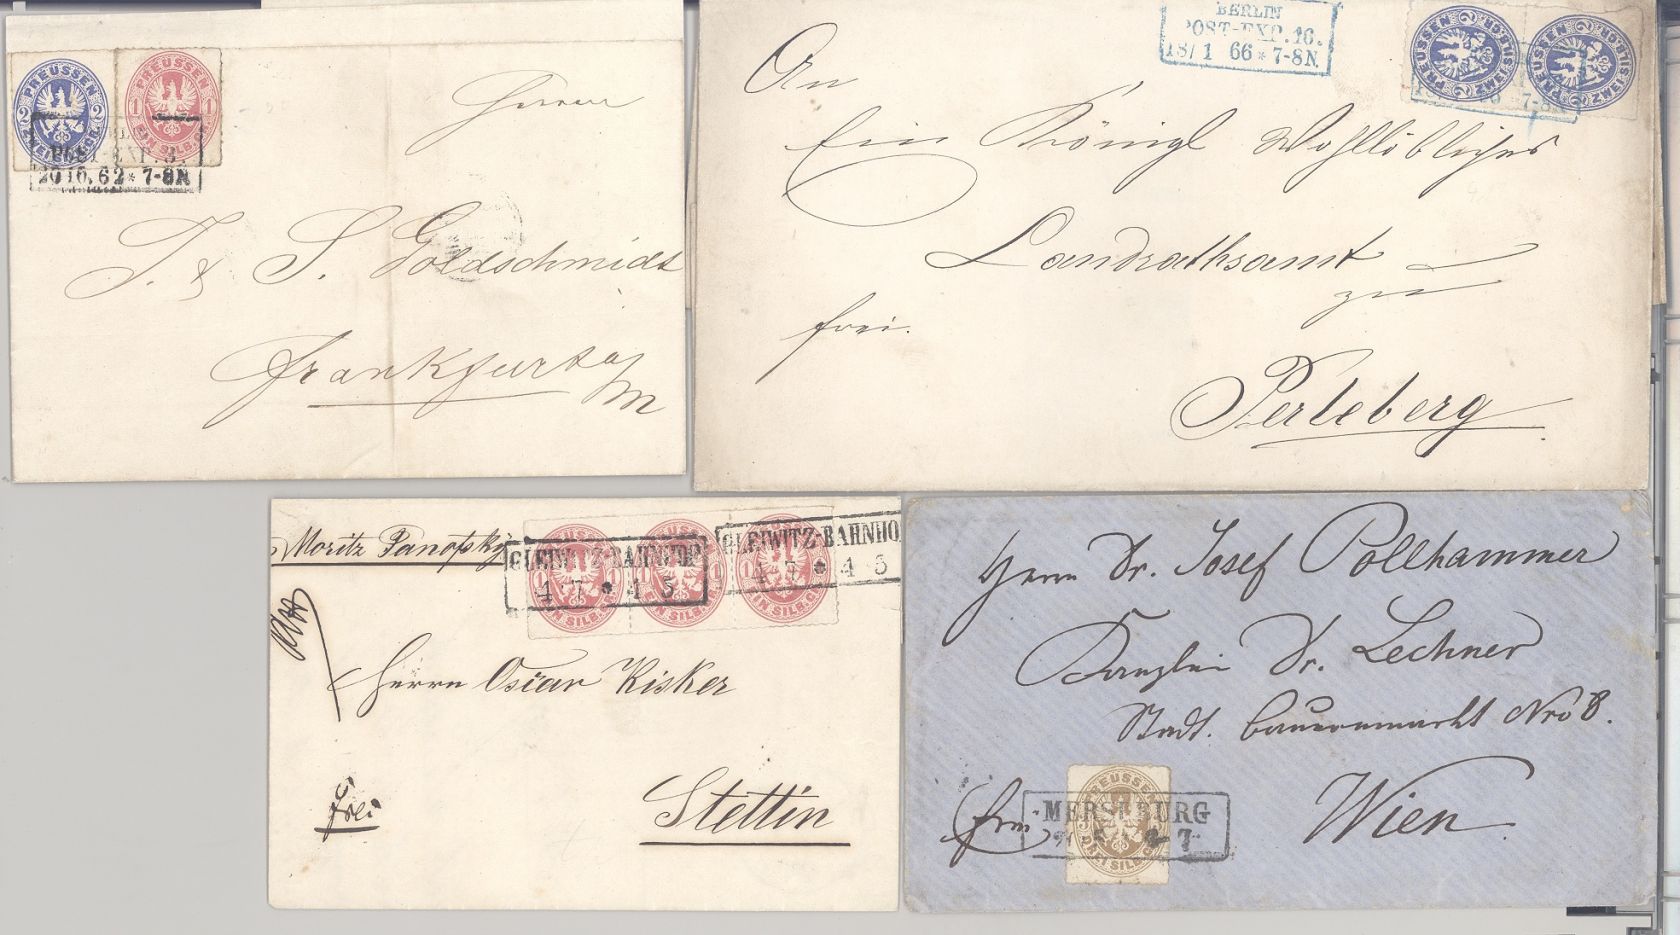 PREUSSEN 2 2
PREUSSEN 1 1 EIN SILB.GR.
POST-EXP. 3.
62 * 7-8N
Herren
J. & S. Goldschmidt
Frankfurt a/m
BERLIN
POST-EXP. 16.
18/1 66 * 7-8N.
PREUSSEN 2 2 ZWEI SILB.GR.
PREUSSEN 2 2 ZWEI SILB.GR.
7-8N
An
Ein Königl Wohllöbliches
Landrathsamt
zu
frei.
Perleberg
Moritz
GLEIWITZ-BAHNHOF
4 7 * 4 5
GLEIWITZ-BAHNHO
4 7 * 4 5
1 EIN SILB.GR.
Herrn Oscar Kisker
frei
Stettin
Herrn Dr. Josef Pollhammer
Kanzlei Dr. Lechner
Stadt. Bauernmarkt Nro 8.
PREUSSEN
DREI SILB.GR.
MERSEBURG
Wien